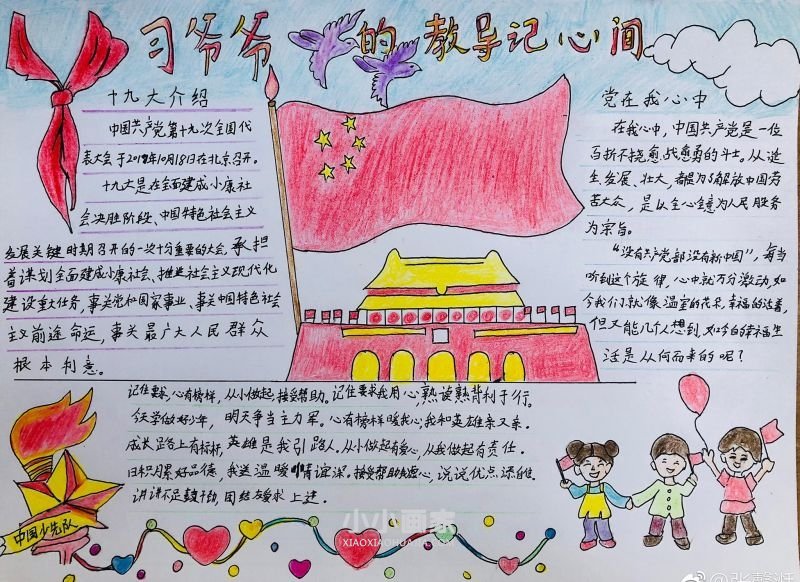 习爷爷的教导记心间
十九大介绍
中国共产党第十九次全国代
表大会于2018年10月18日在北京召开。
十九大是在全面建成小康社
会决胜阶段、中国特色社会主义
发展关键时期召开的一次十分重要的大会,承担
着谋划全面建成小康社会、推进社会主义现代化
建设重大任务,事关党和国家事业、事关中国特色社会
主义前途命运,事关最广大人民群众
根本利意。
党在我心中
在我心中,中国共产党是一位
百折不挠愈战愈勇的斗士,从诞
生、发展、壮大,都是为了解放中国劳
苦大众,是以全心全意为人民服务
为宗旨。
“没有共产党都没有新中国”,每当
听到这个旋律,心中就万分激动,如
今我们就像温室的花朵,幸福的活着,
但又能几人想到,如今的幸福生
活是从何而来的呢?
记住要求,心有榜样,从小做起,接受帮助。记住要求我用心,熟读熟背利于行。
今天学做好少年,明天争当主力军。心有榜样暖我心,我和英雄亲又亲。
成长路上有标杆,英雄是我引路人。从小做起有爱心,从我做起有责任。
日积月累好品德,我送温暖情谊深。接受帮助要虚心,说说优点添自信。
讲讲不足鼓干劲,团结友爱求上进。
中国少先队
小小画家
XIAOXIAOHUAJIA.COM